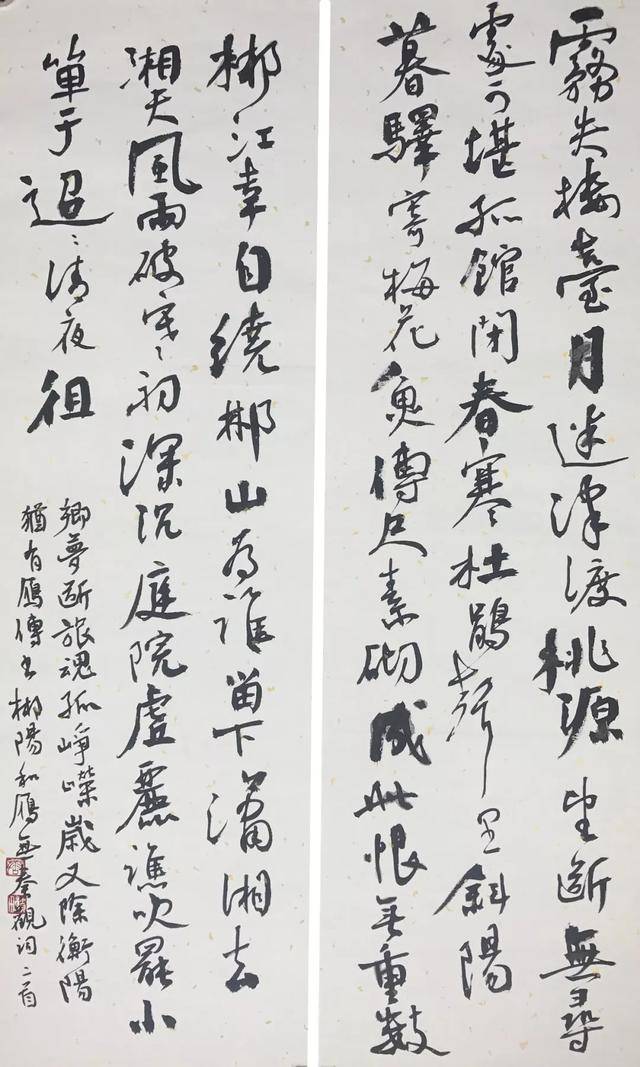 霧失樓臺月迷津渡桃源望斷無尋
處可堪孤館閉春寒杜鵑聲里斜陽
暮驛寄梅花魚傳尺素砌成此恨無重數
郴江幸自繞郴山為誰留下瀟湘去
湘天風雨破寒初深沉庭院虛麗譙吹罷小
單于迢〻清夜徂
鄉夢斷旅魂孤崢嶸歲又除衡陽
猶有鴈傳書郴陽和鴈無秦觀詞二首